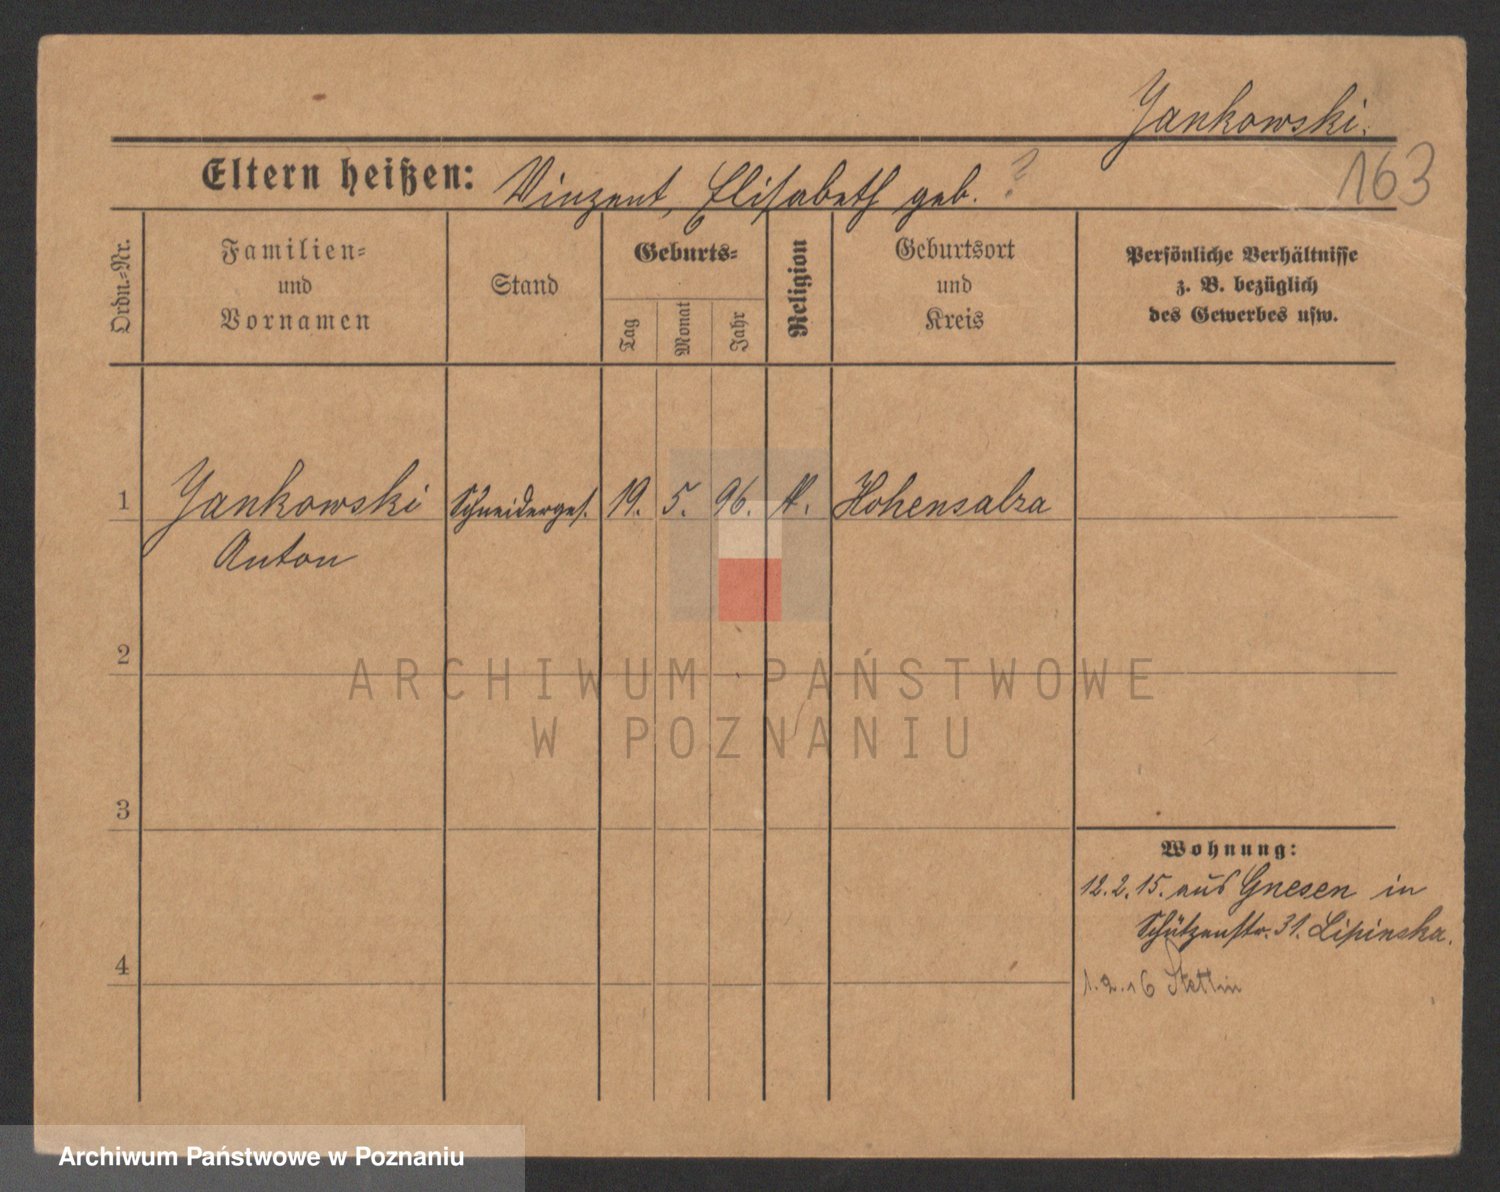 Jankowski.
163
Eltern heißen: Vinzent, Elisabeth geb. ?
Ordn.-Nr.
Familien-
und
Vornamen
Stand
Geburts-
Tag
Monat
Jahr
Religion
Geburtsort
und
Kreis
Persönliche Verhältnisse
z. B. bezüglich
des Gewerbes usw.
1 Jankowski Schneiderges. 19. 5. 96. K. Hohensalza
Anton
2
3
4
Wohnung:
12.2.15. aus Gnesen in
Schützenstr. 31. Lipinska.
1.2.16 Stettin
ARCHIWUM PAŃSTWOWE
W POZNANIU
Archiwum Państwowe w Poznaniu